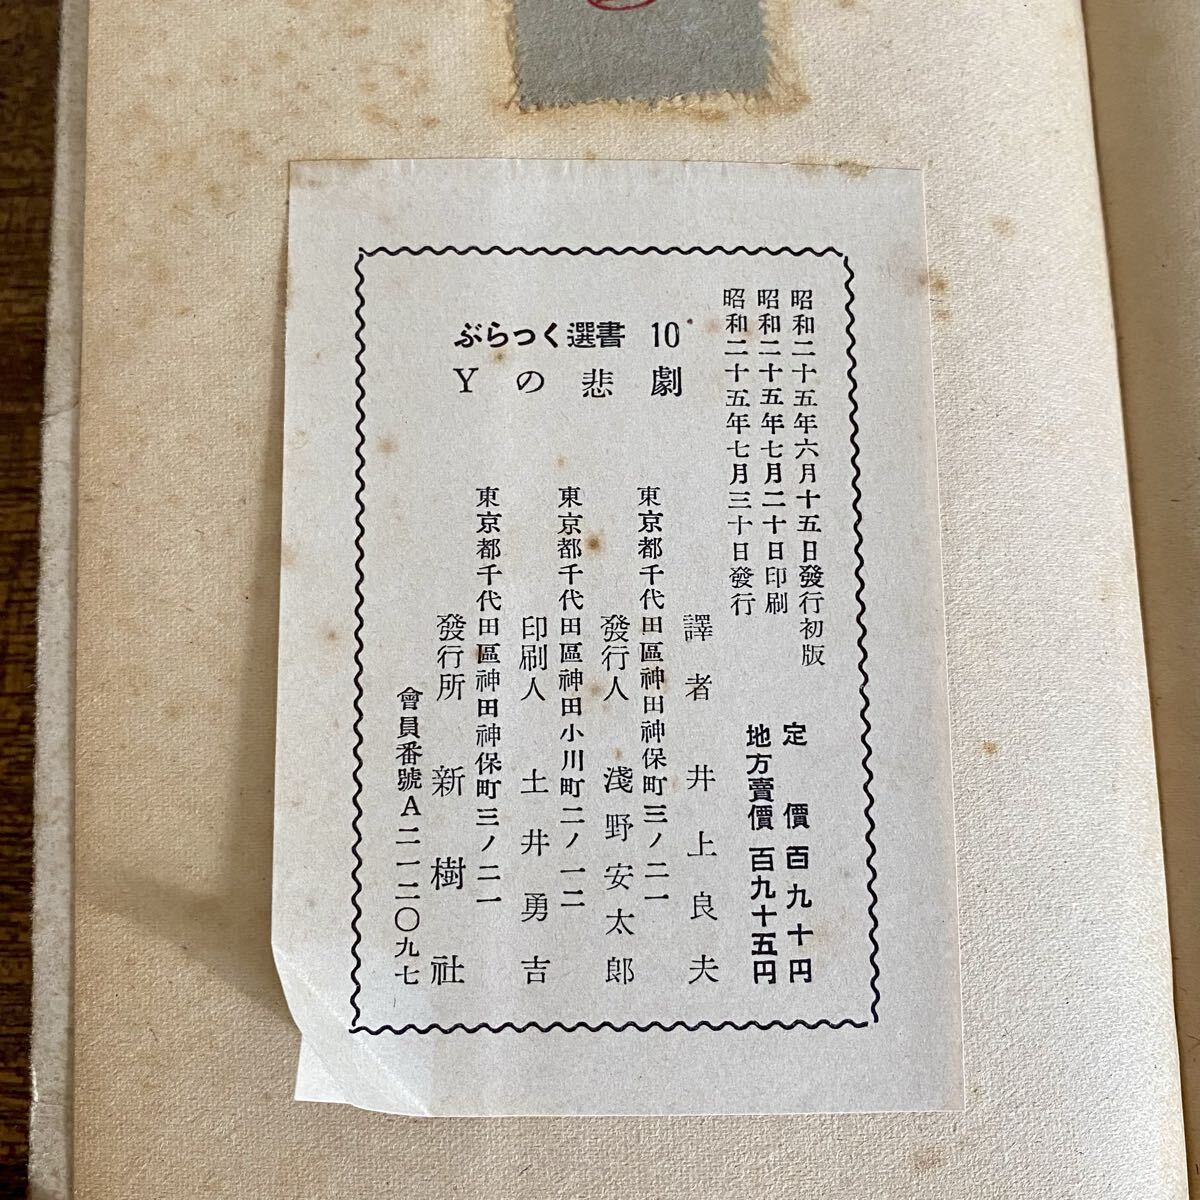 昭和二十五年六月十五日發行初版
昭和二十五年七月二十日印刷
昭和二十五年七月三十日發行
定價百九十円
地方賣價百九十五円
ぶらっく選書 10
Yの悲劇
譯者 井上良夫
東京都千代田區神田神保町三ノ二一
發行人 淺野安太郎
東京都千代田區神田小川町二ノ一二
印刷人 土井勇吉
東京都千代田區神田神保町三ノ二一
發行所 新樹社
會員番號A二一二〇九七